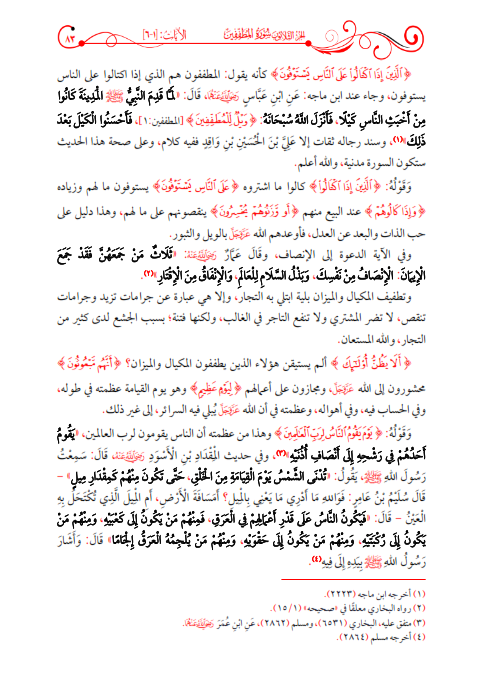 الجزء الثلاثون سُورَةُ المُطَفِّفِينَ
الآيات: [١-٦]
٨٣
﴿الَّذِينَ إِذَا اكْتَالُوا عَلَى النَّاسِ يَسْتَوْفُونَ﴾ كأنه يقول: المطففون هم الذي إذا اكتالوا على الناس
يستوفون، وجاء عند ابن ماجه: عَنِ ابْنِ عَبَّاسٍ رَضِيَ اللَّهُ عَنْهُمَا، قَالَ: «لَمَّا قَدِمَ النَّبِيُّ ﷺ الْمَدِينَةَ كَانُوا
مِنْ أَخْبَثِ النَّاسِ كَيْلًا، فَأَنْزَلَ اللهُ سُبْحَانَهُ: ﴿وَيْلٌ لِلْمُطَفِّفِينَ﴾ [المطففين:١]، فَأَحْسَنُوا الْكَيْلَ بَعْدَ
ذَلِكَ»(١)، وسند رجاله ثقات إلا عَلِيَّ بْنَ الْحُسَيْنِ بْنِ وَاقِدٍ ففيه كلام، وعلى صحة هذا الحديث
ستكون السورة مدنية، والله أعلم.
وَقَوْلُهُ: ﴿الَّذِينَ إِذَا اكْتَالُوا﴾ كالوا ما اشتروه ﴿عَلَى النَّاسِ يَسْتَوْفُونَ﴾ يستوفون ما لهم وزياده
﴿وَإِذَا كَالُوهُمْ﴾ عند البيع منهم ﴿أَو وَزَنُوهُمْ يُخْسِرُونَ﴾ ينقصونهم على ما لهم، وهذا دليل على
حب الذات والبعد عن العدل، فأوعدهم الله عَزَّوَجَلَّ بالويل والثبور.
وفي الآية الدعوة إلى الإنصاف، وقَالَ عَمَّارٌ رَضِيَ اللَّهُ عَنْهُ: «ثَلَاثٌ مَنْ جَمَعَهُنَّ فَقَدْ جَمَعَ
الْإِيمَانَ: الْإِنْصَافُ مِنْ نَفْسِكَ، وَبَذْلُ السَّلَامِ لِلْعَالَمِ، وَالْإِنْفَاقُ مِنَ الْإِقْتَارِ»(٢).
وتطفيف المكيال والميزان بلية ابتلي به التجار، وإلا هي عبارة عن جرامات تزيد وجرامات
تنقص، لا تضر المشتري ولا تنفع التاجر في الغالب، ولكنها فتنة؛ بسبب الجشع لدى كثير من
التجار، والله المستعان.
﴿أَلَا يَظُنُّ أُولَئِكَ﴾ ألم يستيقن هؤلاء الذين يطففون المكيال والميزان؟ ﴿أَنَّهُمْ مَبْعُوثُونَ﴾
محشورون إلى الله عَزَّوَجَلَّ، ومجازون على أعمالهم ﴿لِيَوْمٍ عَظِيمٍ﴾ وهو يوم القيامة عظمته في طوله،
وفي الحساب فيه، وفي أهواله، وعظمته في أن الله عَزَّوَجَلَّ يُبلي فيه السرائر، إلى غير ذلك.
وَقَوْلُهُ: ﴿يَوْمَ يَقُومُ النَّاسُ لِرَبِّ الْعَالَمِينَ﴾ وهذا من عظمته أن الناس يقومون لرب العالمين، «يَقُومُ
أَحَدُهُمْ فِي رَشْحِهِ إِلَى أَنْصَافِ أُذُنَيْهِ»(٣)، وفي حديث الْمِقْدَادِ بْنِ الْأَسْوَدِ رَضِيَ اللَّهُ عَنْهُ، قَالَ: سَمِعْتُ
رَسُولَ اللهِ ﷺ، يَقُولُ: «تُدْنَى الشَّمْسُ يَوْمَ الْقِيَامَةِ مِنَ الْخَلْقِ، حَتَّى تَكُونَ مِنْهُمْ كَمِقْدَارِ مِيلٍ» –
قَالَ سُلَيْمُ بْنُ عَامِرٍ: فَوَاللهِ مَا أَدْرِي مَا يَعْنِي بِالْمِيلِ؟ أَمَسَافَةَ الْأَرْضِ، أَمِ الْمِيلَ الَّذِي تُكْتَحَلُ بِهِ
الْعَيْنُ – قَالَ: «فَيَكُونُ النَّاسُ عَلَى قَدْرِ أَعْمَالِهِمْ فِي الْعَرَقِ، فَمِنْهُمْ مَنْ يَكُونُ إِلَى كَعْبَيْهِ، وَمِنْهُمْ مَنْ
يَكُونُ إِلَى رُكْبَتَيْهِ، وَمِنْهُمْ مَنْ يَكُونُ إِلَى حَقْوَيْهِ، وَمِنْهُمْ مَنْ يُلْجِمُهُ الْعَرَقُ إِلْجَامًا» قَالَ: وَأَشَارَ
رَسُولُ اللهِ ﷺ بِيَدِهِ إِلَى فِيهِ(٤).
(١) أخرجه ابن ماجه (٢٢٢٣).
(٢) رواه البخاري معلقًا في «صحيحه» (١/ ١٥).
(٣) متفق عليه، البخاري (٦٥٣١)، ومسلم (٢٨٦٢)، عَنِ ابْنِ عُمَرَ رَضِيَ اللَّهُ عَنْهُمَا.
(٤) أخرجه مسلم (٢٨٦٤).